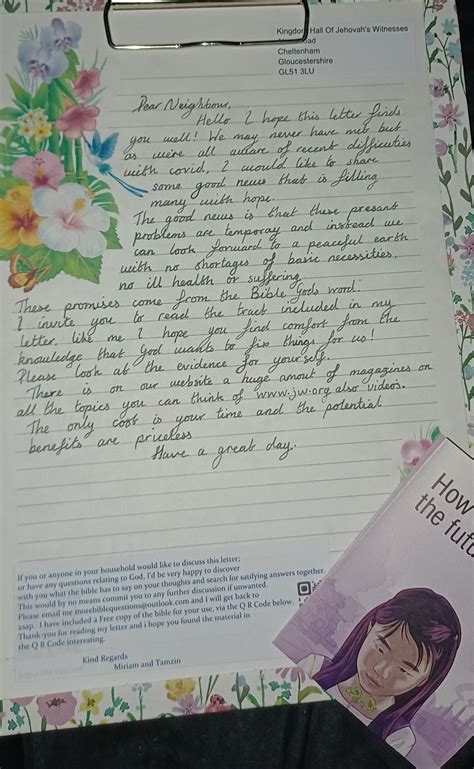 Kingdom Hall Of Jehovah's Witnesses
Cheltenham
Gloucestershire
GL51 3LU
Dear Neighbour,
Hello I hope this letter finds
you well! We may never have met but
as we're all aware of recent difficulties
with covid, I would like to share
some good news that is filling
many with hope.
The good news is that these present
problems are temporay and instead we
can look forward to a peaceful earth
with no shortages of basic necessities,
no ill health or suffering.
These promises come from the Bible, Gods word.
I invite you to read the tract included in my
letter, like me I hope you find comfort from the
knowledge that God wants to fix things for us!
Please look at the evidence for yourself.
There is on our website a huge amout of magazines on
all the topics you can think of www.jw.org also videos.
The only cost is your time and the potential
benefits are priceless
Have a great day.
If you or anyone in your household would like to discuss this letter;
or have any questions relating to God, I'd be very happy to discover
with you what the bible has to say on your thoughts and search for satifying answers together.
This would by no means commit you to any further discussion if unwanted.
Please email me morebiblequestions@outlook.com and I will get back to
asap. I have included a Free copy of the bible for your use, via the Q R Code below.
Thank-you for reading my letter and i hope you found the material in
the Q R Code interesting.
Kind Regards
Miriam and Tamzin
How
the futu